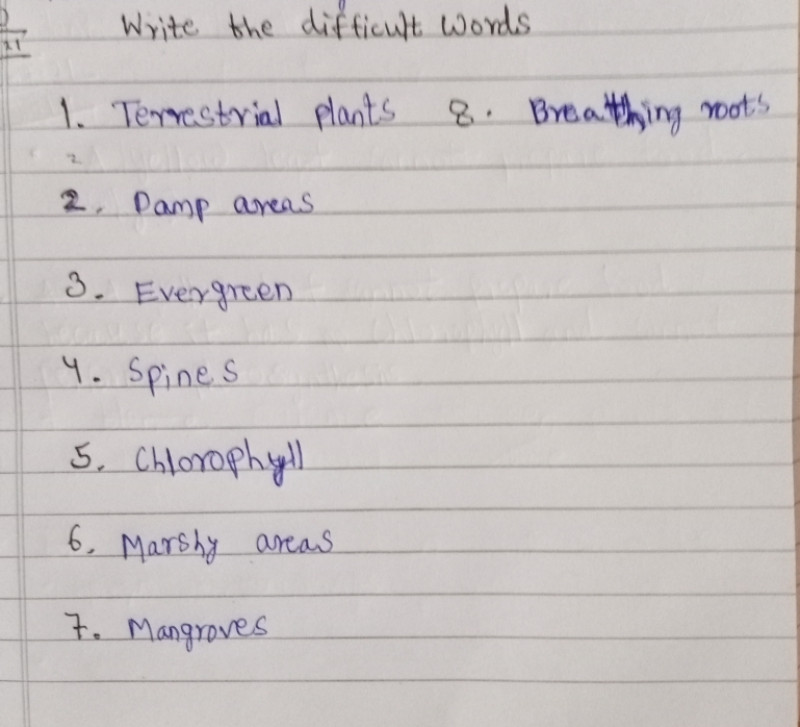 Write the difficult words
1. Terrestrial plants 8. Breathing roots
2
2. Damp areas
3. Evergreen
4. Spines
5. Chlorophyll
6. Marshy areas
7. Mangroves